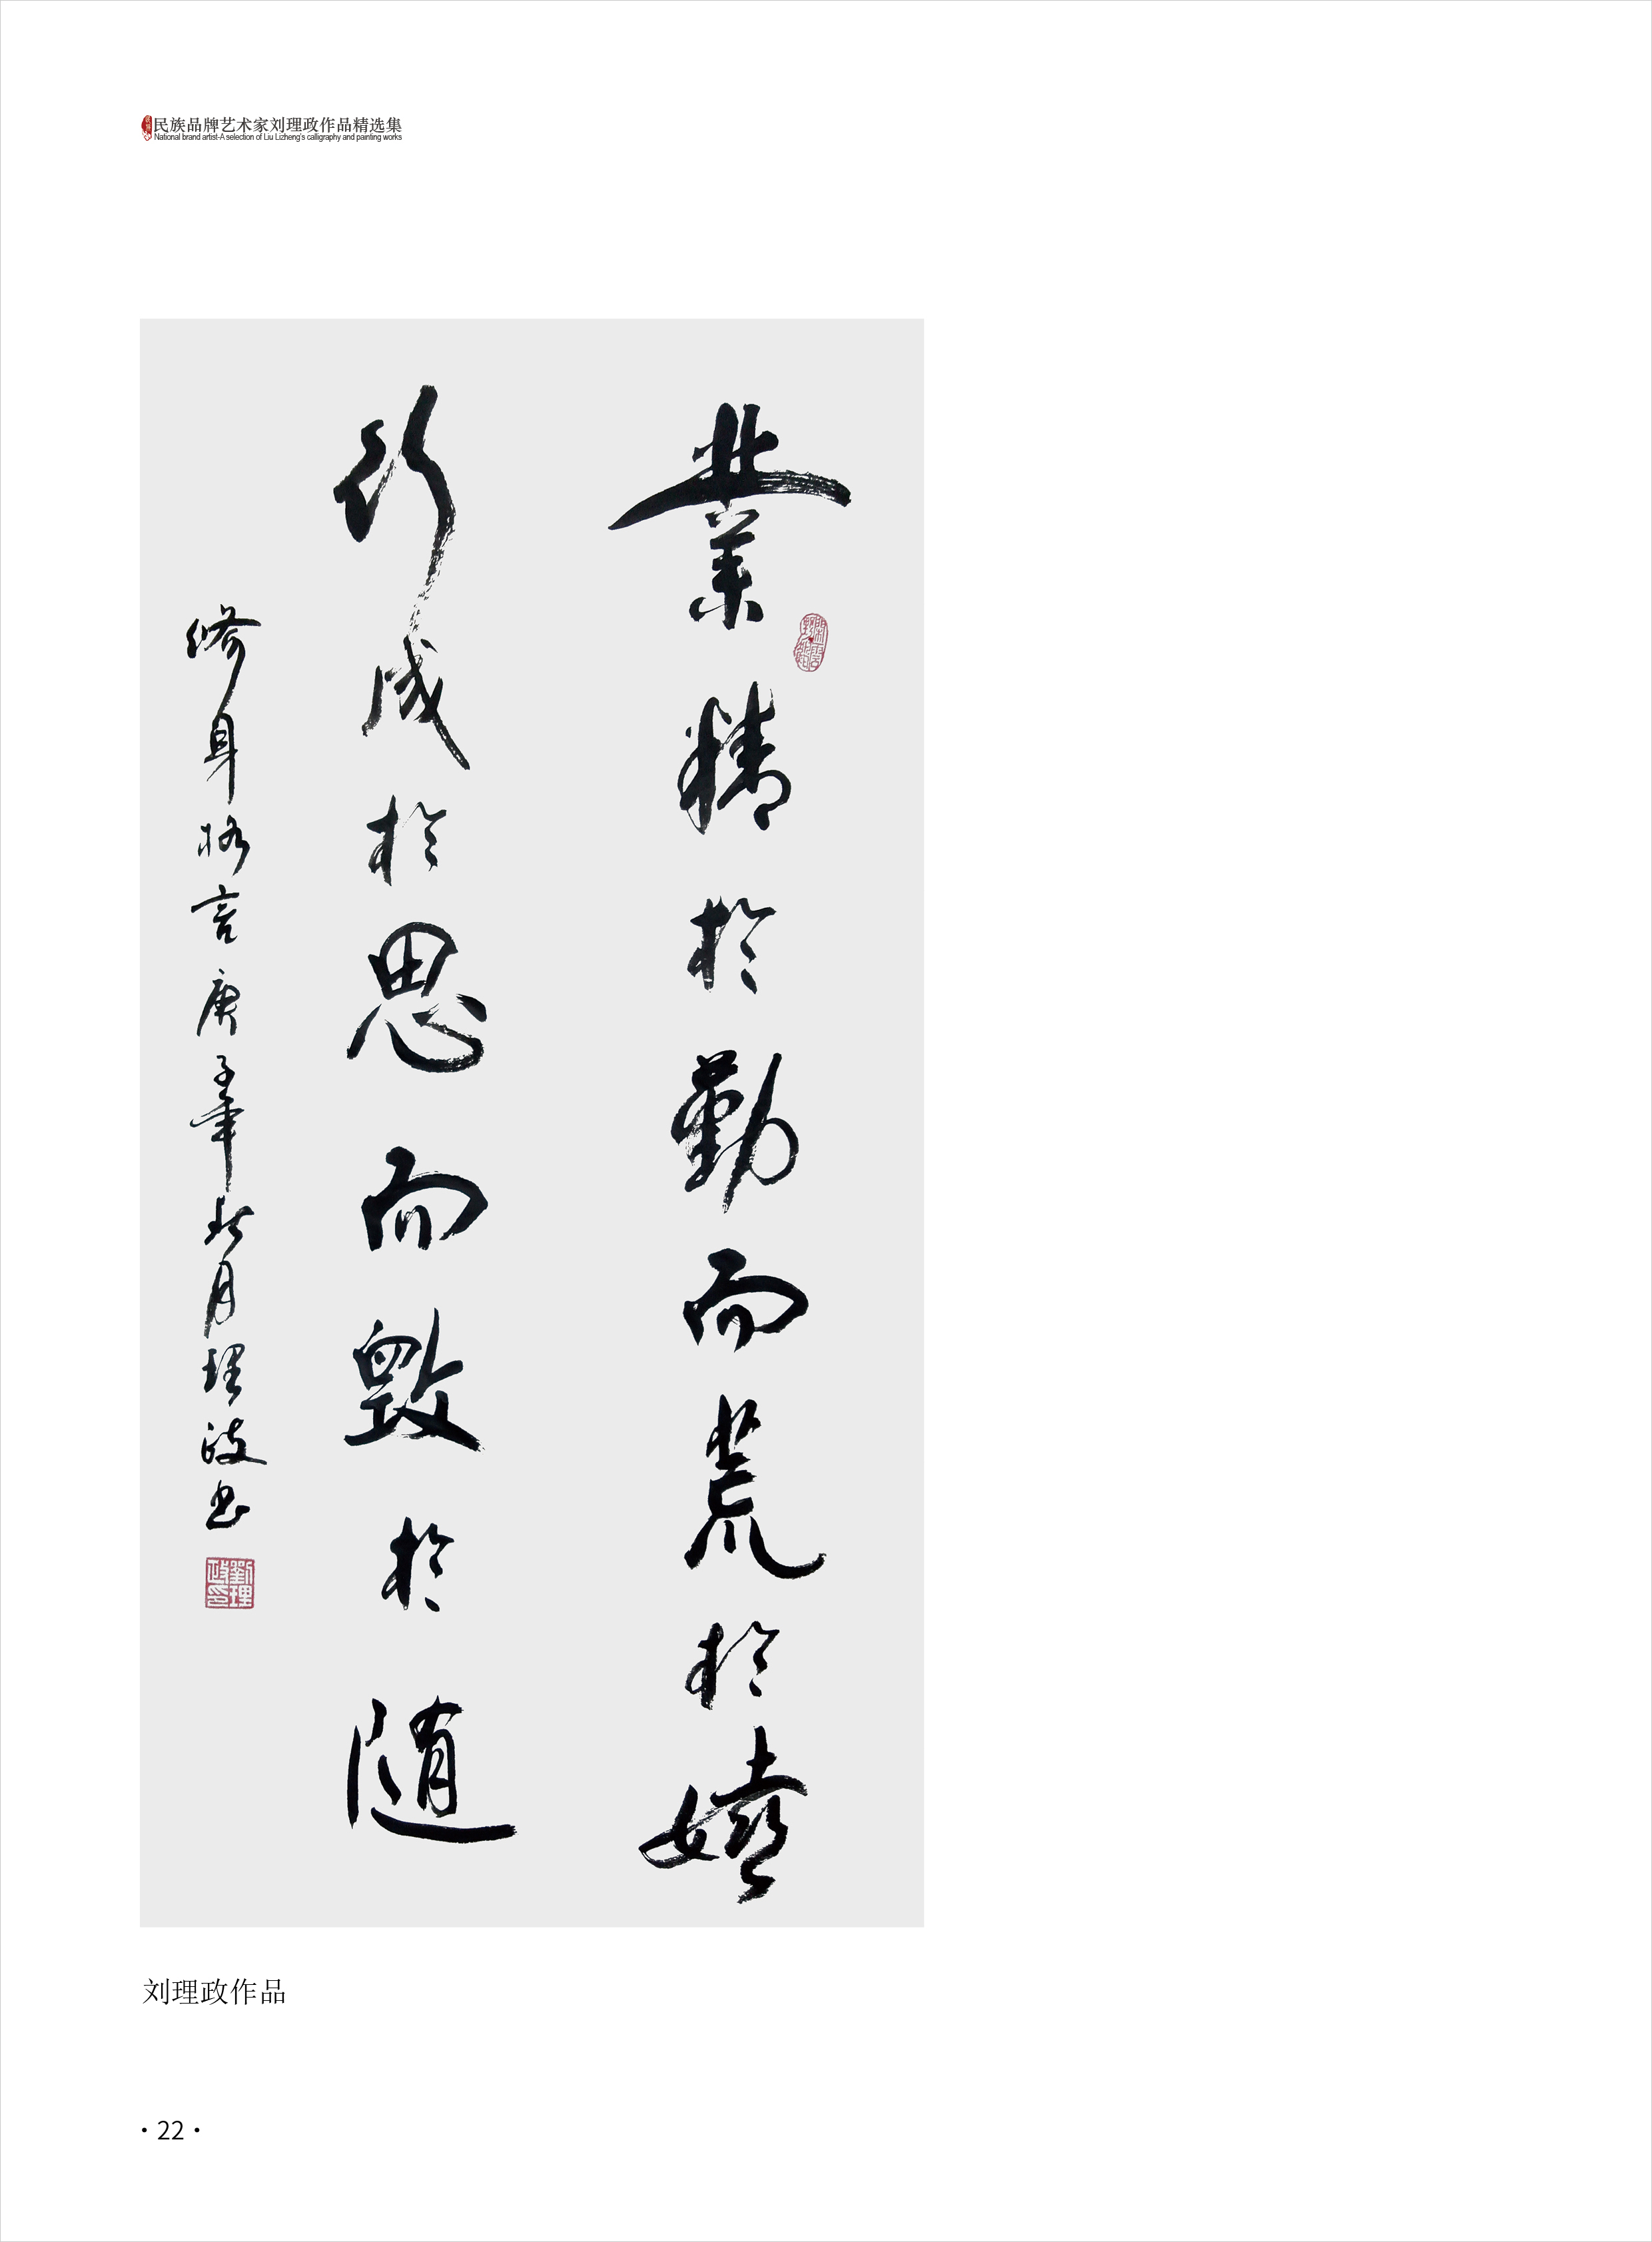 民族品牌艺术家刘理政作品精选集
National brand artist-A selection of Liu Lizheng's calligraphy and painting works
業精於勤而荒於嬉
行成於思而毀於随
修身格言庚子年秋月理政书
劉理政印
刘理政作品
·22·